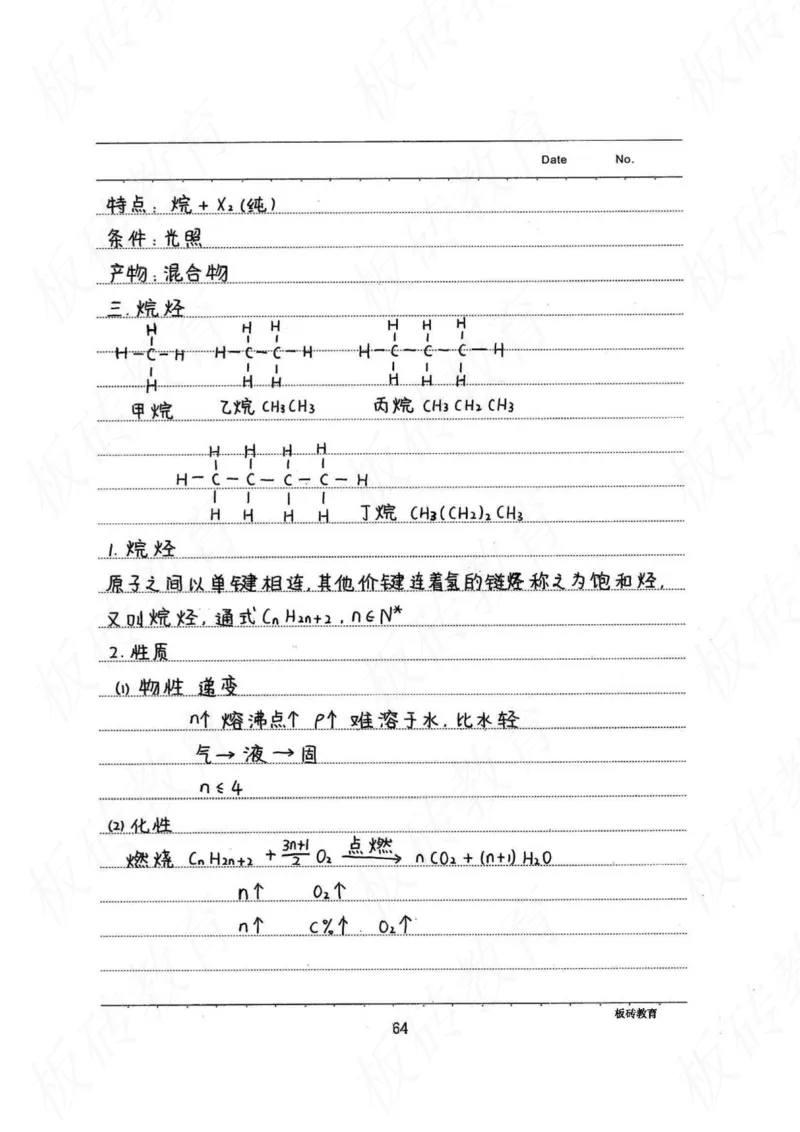 Date No.
特点：烷 + X₂ (纯)
条件：光照
产物：混合物
三. 烷烃
H H H H H H
H-C-H H-C-C-H H-C-C-C-H
H H H H H H
甲烷 乙烷 CH₃CH₃ 丙烷 CH₃CH₂CH₃
H H H H
H-C-C-C-C-H
H H H H 丁烷 CH₃(CH₂)₂CH₃
1. 烷烃
原子之间以单键相连,其他价键连着氢的链烃称之为饱和烃,
又叫烷烃, 通式 CₙH₂ₙ₊₂, n∈N*
2. 性质
(1) 物性 递变
n↑ 熔沸点↑ ρ↑ 难溶于水. 比水轻
气→液→固
n≤4
(2) 化性
燃烧 CₙH₂ₙ₊₂ + (3n+1)/2 O₂ 点燃→ nCO₂ + (n+1)H₂O
n↑ O₂↑
n↑ C%↑ O₂↑
板砖教育
64